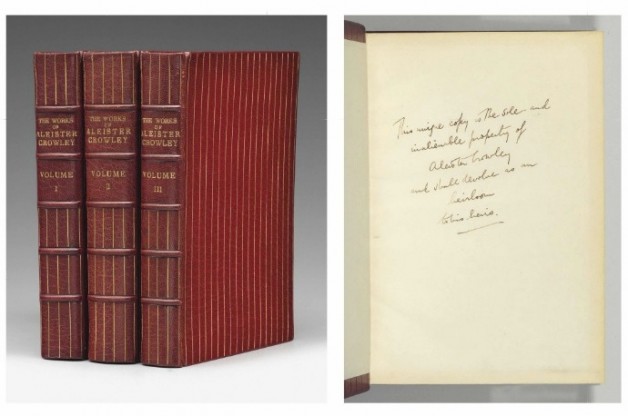 THE WORKS
OF
ALEISTER
CROWLEY
VOLUME
I
THE WORKS
OF
ALEISTER
CROWLEY
VOLUME
2
THE WORKS
OF
ALEISTER
CROWLEY
VOLUME
III
This unique copy is the sole and
inalienable property of
Aleister Crowley
and shall devolve as an
heirloom
to his heirs.